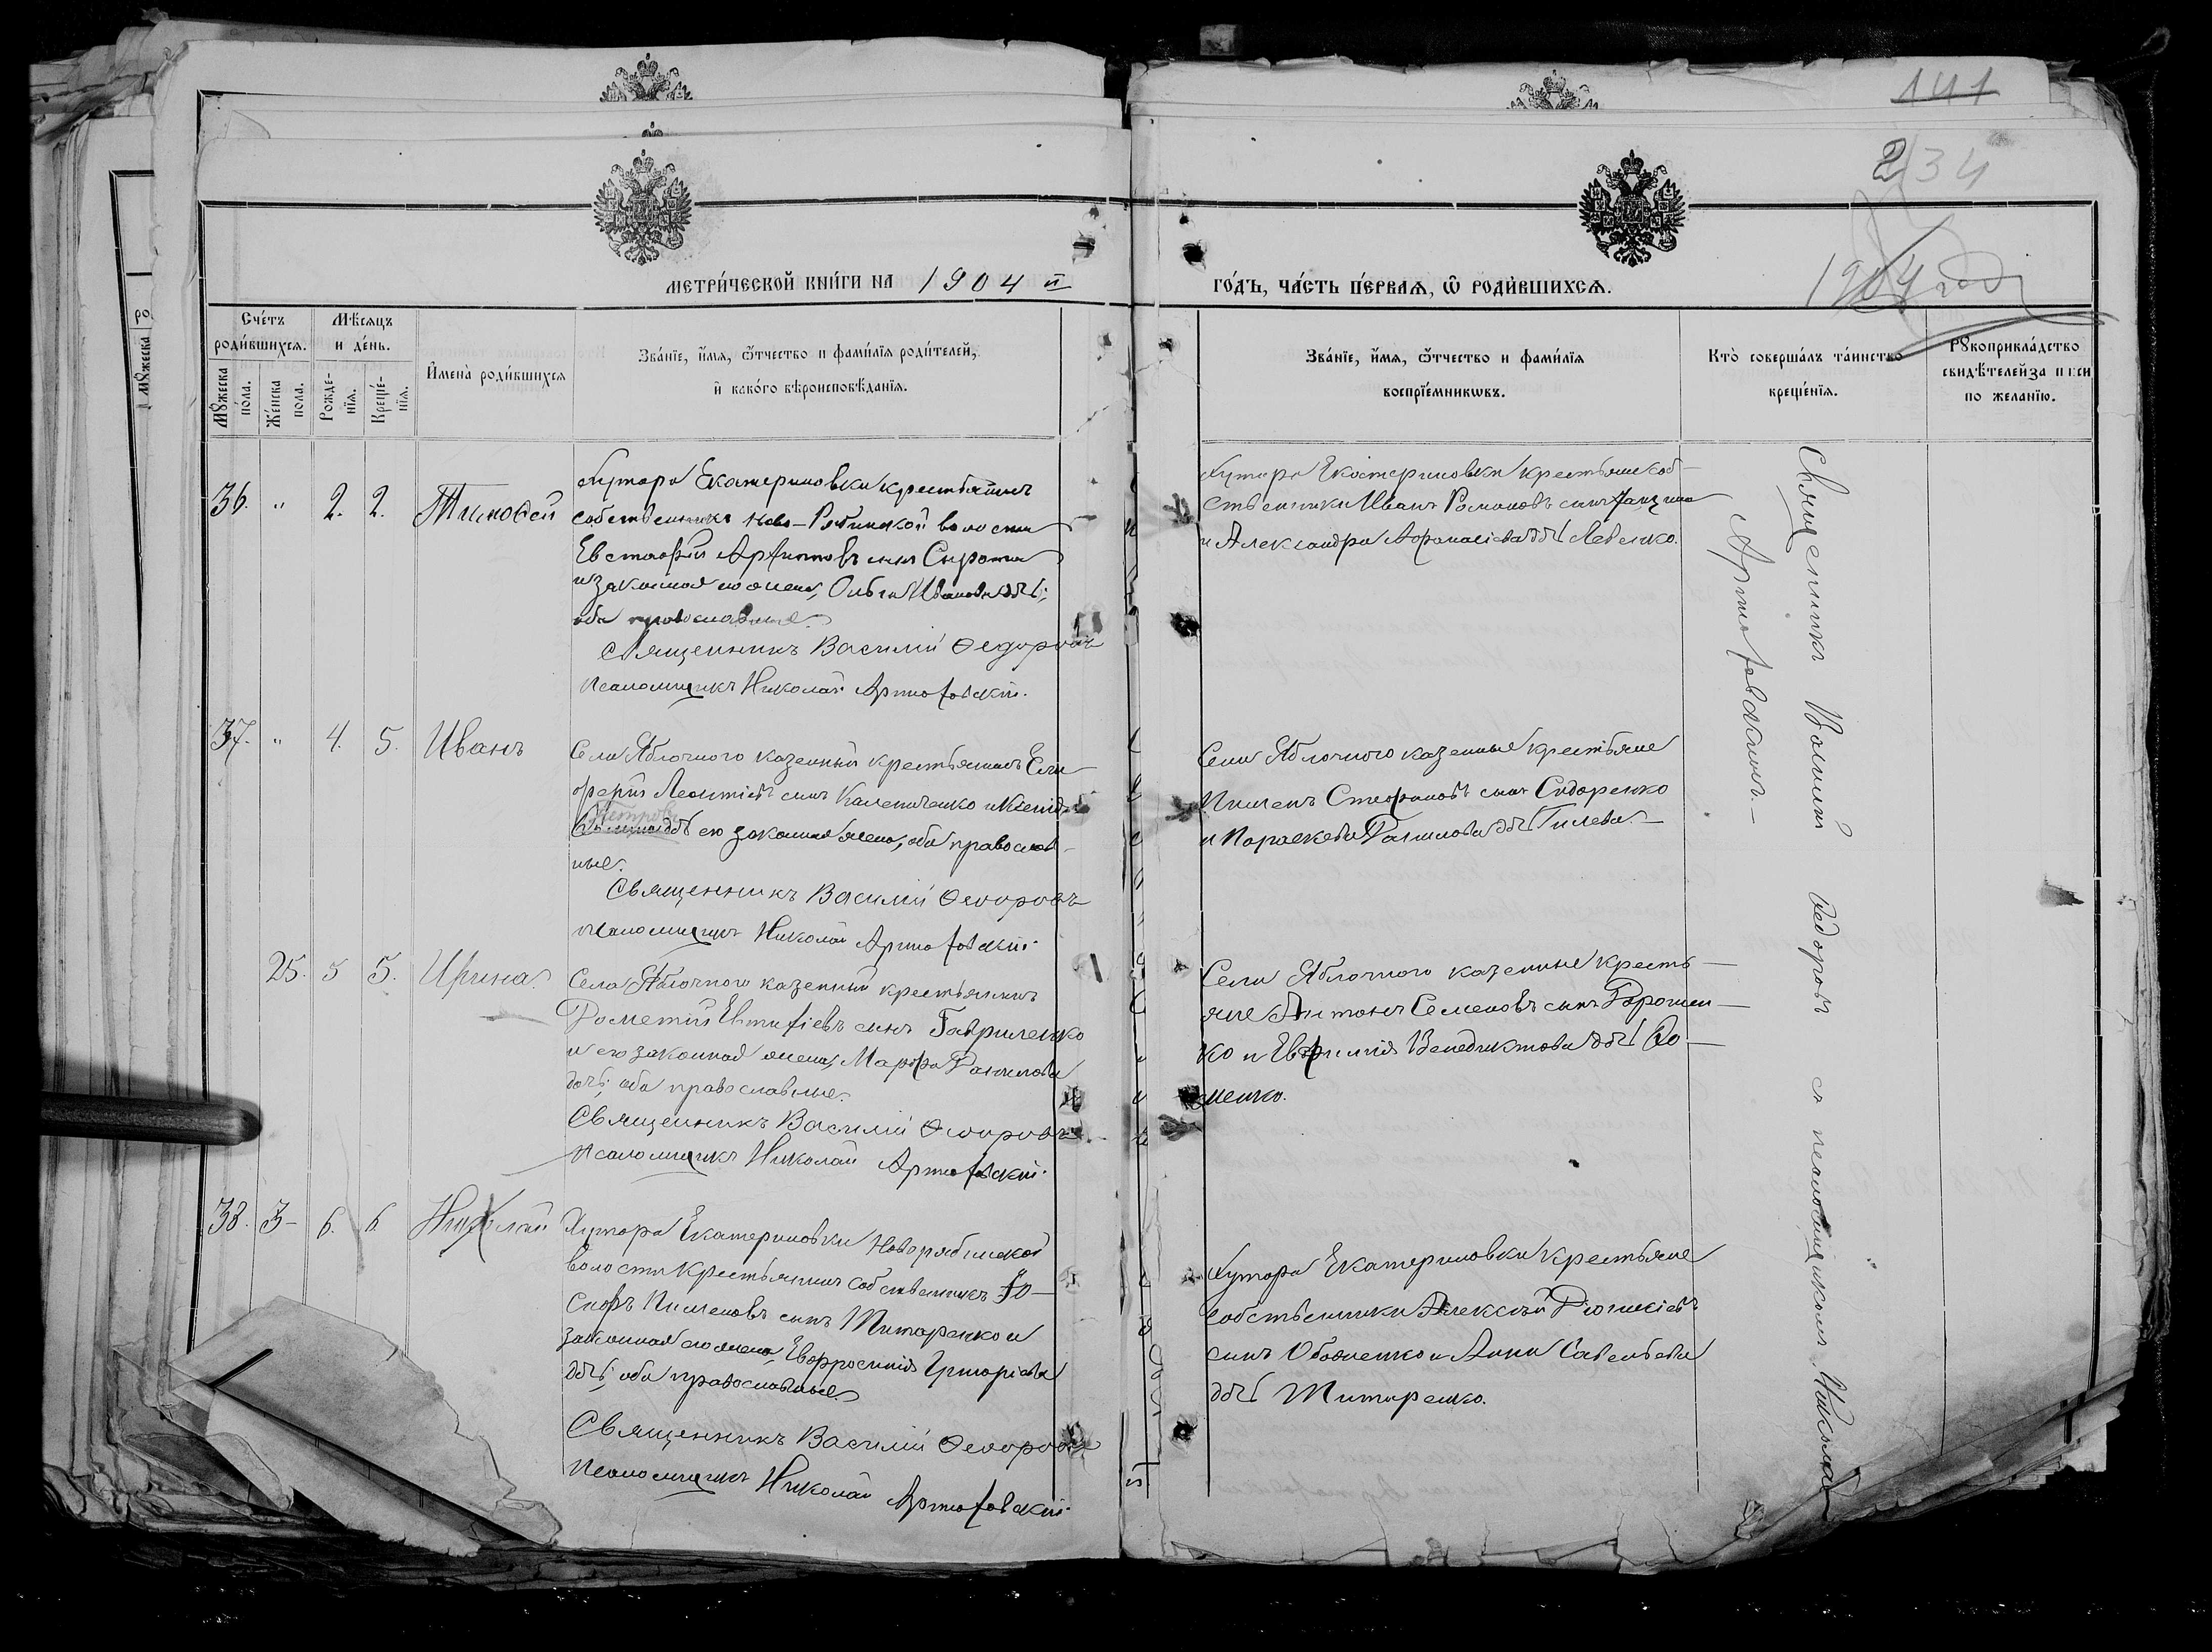 141
234
МЕТРИ́ЧЕСКОЙ КНИ́ГИ НА 1904 й
ГО́ДЪ, ЧА́СТЬ ПЕ́РВАѦ, Ѡ РОДИ́ВШИХСѦ.
1904 годъ
Сче́тъ роди́вшихсѧ.
Мꙋ́жеска по́ла.
Же́нска пола.
Мѣ́сѧцъ и де́нь.
Рожде-нїѧ.
Креще́-нїѧ.
И҆мена̀ роди́вшихсѧ
Зва́нїе, и҆́мѧ, ѻ҆́тчество и фами́лїѧ роди́телей,
и҆ како́го вѣроисповѣ́данїѧ.
Зва́нїе, и҆́мѧ, ѻ҆́тчество и фами́лїѧ
воспрїе́мникѡвъ.
Кто̀ соверша́лъ та́инство
креще́нїѧ.
Рꙋкоприкла́дство
свидѣ́телей за
по жела́нїю.
36. " 2. 2. Тимофей
Хутора Екатериновки крестьянинъ
собственникъ Ново-Рябинской волости
Евстафій сынъ Сирота
и законная его жена, Ольга Иванова дочь;
оба православные.
Священникъ Василій Ѳедоровъ
Псаломщикъ Николай Артюховскій.
Хутора Екатериновки крестьяне соб-
ственники Иванъ Романовъ сынъ
и Александра Афанасіева дочь
37. " 4. 5. Иванъ
Села Яблочного казенный крестьянинъ Ели-
ферій Леонтіевъ сынъ и
Петрова
дочь его законная жена, оба православ-
ные.
Священникъ Василій Ѳеодоровъ
Псаломщикъ Николай Артюховскій.
Села Яблочного казенные крестьяне
Пименъ Стефановъ сынъ Сидоренко
и Параскева Данилова дочь Гилева.
25. 5 5. Ирина.
Села Яблочного казенный крестьянинъ
Дометій Евтихіевъ сынъ Гавриленко
и его законная жена, Марфа Данилова
дочь; оба православные.
Священникъ Василій Ѳеодоровъ
Псаломщикъ Николай Артюховскій.
Села Яблочного казенные кресть-
яне Антонъ Семеновъ сынъ
ко и Евфимія Венедиктова дочь
менко.
38. 3- 6. 6 Николай
Хутора Екатериновки Новорябинской
волости крестьянинъ собственникъ Іо-
сифъ Пименовъ сынъ Титаренко и
законная его жена, Евфросинія Григоріева
дочь, оба православные.
Священникъ Василій Ѳеодоровъ
Псаломщикъ Николай Артюховскій.
Хутора Екатериновки крестьяне
собственники Алексѣй Діонисіевъ
сынъ и Анна Савельева
дочь Титаренко.
Священникъ Василій Ѳедоровъ съ псаломщикомъ Николаемъ
Артюховскимъ.